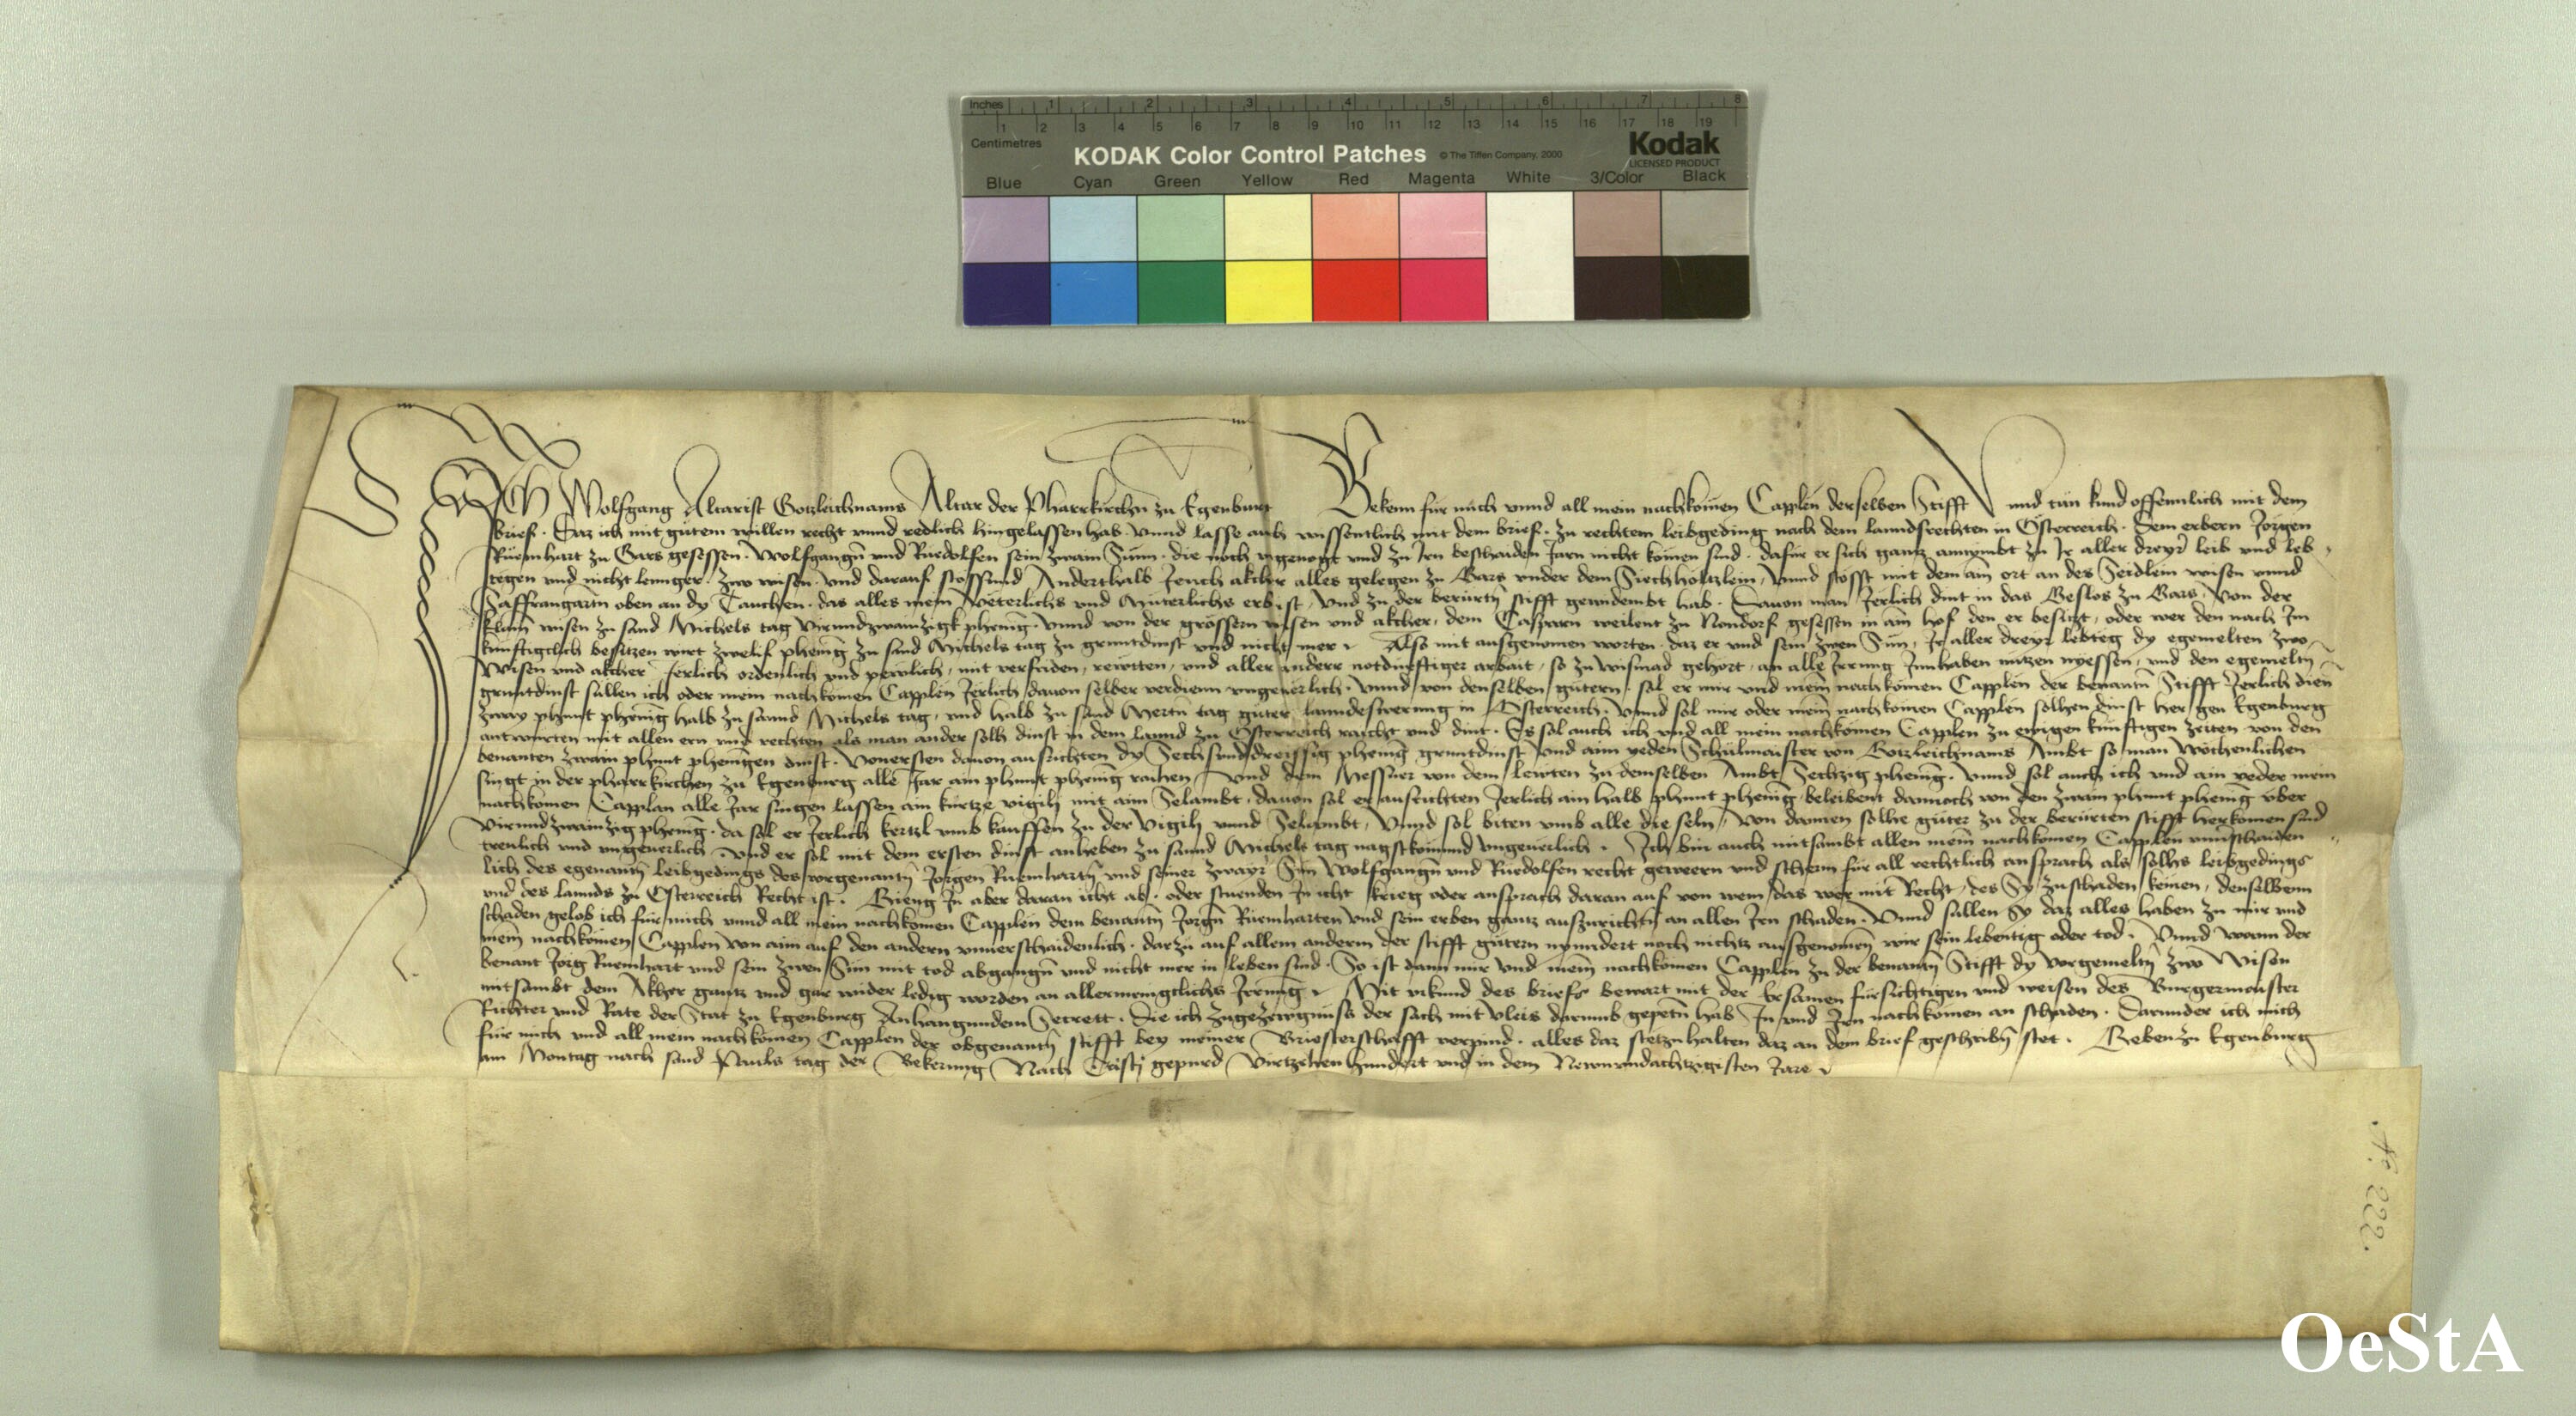 Inches 1 2 3 4 5 6 7 8
1 2 3 4 5 6 7 8 9 10 11 12 13 14 15 16 17 18 19
Centimetres
KODAK Color Control Patches © The Tiffen Company, 2000 Kodak
LICENSED PRODUCT
Blue Cyan Green Yellow Red Magenta White 3/Color Black
Ich Wolfgang Altarist Gotzleichnams Altar der Pharrkirchn zu Egenburg Bekenn für mich vnnd all mein nachkomen Capplen derselben Stifft vnd tun kund offennlich mit dem
brief. Daz ich mit gutem willen recht vnnd redlich hingelassen hab. Vnnd lasse auch wissentlich mit dem brief. zu rechtem leibgeding nach dem lanndsrechten in Osterreich. Dem erbern Jörgen
Ruemhart zu Gars gesessen. Wolfgangn und Ruedolfen sein zwain Sünn. die noch vngenogt vnd zu Irn beschaiden Jarn nicht komen sind. dafur er sich gantz annymbt zu Ir aller dreyr leib vnd leb
tegen vnd nicht lennger. zwo wisen. Vnd darauf stossund Anderthalb Jeuch akcher alles gelegen zu Gars vnder dem Siechholtzlein, Vnnd stosst mit dem ain ort an des Seidlein wisen vnnd
Saffrangartn oben an dy Tauchen. das alles mein Veterlichs vnd Müterlichs erb ist, Vnd zu der berürtn stifft gewidembt hab. Dauon man Jerlich dint in das Geslos zu Gars. Von der
klain wisen zu sand Michels tag Virundzwainzigk phenig. Vnnd von der grössern wisen vnd akcher, dem Casparn weilent zu Nondorf gesessen in aim hof den er besitzt, oder wer den nach Im
künftigclich besitzen wirt zwelif phenig zu sand Michels tag zu gruntdinst vnd nicht mer Also mit ausgenomen worten. daz er vnd sein zwen Sün, Ir aller dreyr lebteg dy egemelten zwo
Wisen vnd akcher Jerlich ordenlich vnd pewlich, mit verfriden, rewtten, vnd aller anderr notdurftiger arbait, so zu wismad gehort, an alle Irrung Innhaben nutzen nyessen, vnd den egemeltn
gruntdinst sullen ich oder mein nachkomen Capplen Jerlich dauon selber verdienn vngeuerlich. Vnnd von denselben gütern. sol er mir vnd mein nachkomen Capplen der benantn Stifft Jerlich dien
zway phunt phenig halb zu sannd Michels tag, vnd halb zu sand Mertn tag guter lanndeswerung in Osterreich. Vnnd sol mir oder mein nachkomen Capplen solhen dinst her gen Egenburg
antwurten mit allen ern vnd rechten als man ander solh dinst in dem lannd zu Osterreich raicht vnd dint. Es sol auch ich vnd all mein nachkomen Capplen zu ewigen künftigen zeiten von den
benanten zwain phunt phenigen dinst. Vonersten dauon ausrichten dy Sechsundreissig phenig gruntdinst vnd aim yeden Schulmaister von Gotzleichnams Ambt so man wöchenlichen
singt in der pharrkirchen zu Egenburg alle Jar ain phunt phenig raihen, Vnd dem Messner von dem lewten zu demselben Ambt Sechzig phenig. Vnnd sol auch ich vnd ain yeder mein
nachkomen Capplan alle Jar singen lassen ain kurtze vigilj mit aim Selambt. dauon sol er ausrichten Jerlich ain halb phunt phenig beleibent dannoch von den zwain phunt phenig über
Virundzwainzig phenig. da sol er Jerlich kertzl vmb kauffen zu der Vigilj vnnd Selambt, Vnnd sol biten vmb alle die seln, Von dannen solhe güter zu der berürten stifft herkomen sind
trewlich vnd vngeuerlich. Vnd er sol mit dem ersten dinst anheben zu sannd Michels tag nagstkomund vngeuerlich. Ich bin auch mitsambt allen mein nachkomen Capplen vnuerschaiden
lich des egenantn leibgedings des vorgenantn Jörgen Ruemhartn vnd seiner zwayr Sün Wolfgangn vnd Ruedolfen recht geweern vnd scherm für all rechtlich ansprach als solhs leibgedings
vnd des lannds zu Osterreich Recht ist. Gieng In aber daran icht ab. oder stuenden In icht krieg oder ansprach daran auf von wem das wer mit Recht, des Sy zuschaden kemen, denselbenn
schaden gelob ich für mich vnnd all mein nachkomen Capplen dem benantn Jörgn Ruemharten vnd sein erben gantz auszurichtn an allen Irn schaden. Vnnd sullen Sy daz alles haben zu mir vnd
mein nachkomen Capplen von aim auf den andern vnuerschaidenlich. darzu auf allem anderm der stifft gütern nynndert noch nichtz ausgenomen wir sein lebentig oder tod. Vnnd wann der
benant Jörg Ruemhart vnd sein zwen Sün mit tod abgangn vnd nicht mer in leben sind. So ist dann mir vnd mein nachkomen Capplen zu der benantn Stifft dy vorgemeltn zwo Wisen
mitsambt dem Akher gantz vnd gar wider ledig worden an allermenigclichs Irrung Mit vrkund des briefs bewart mit der Ersamen fürsichtigen vnd weisen des Burgermaister
Richter vnd Rate der Stat zu Egenburg Anhangundem Secrett. Die ich zugezewgnuss der sach mit vleis darumb gepetn hab In vnd Irn nachkomen an schaden. Darunder ich mich
für mich vnd all mein nachkomen Capplen der obgenantn stifft bey meiner Briesterschafft verpind. alles daz stetzuhalten daz an dem brief geschribn stet. Geben zu Egenburg
am Montag nach sand Pauls tag der Bekerung Nach Cristj gepurd Virtzehenhundert vnd in dem Newnundachtzigisten Jare
No 222.
OeStA